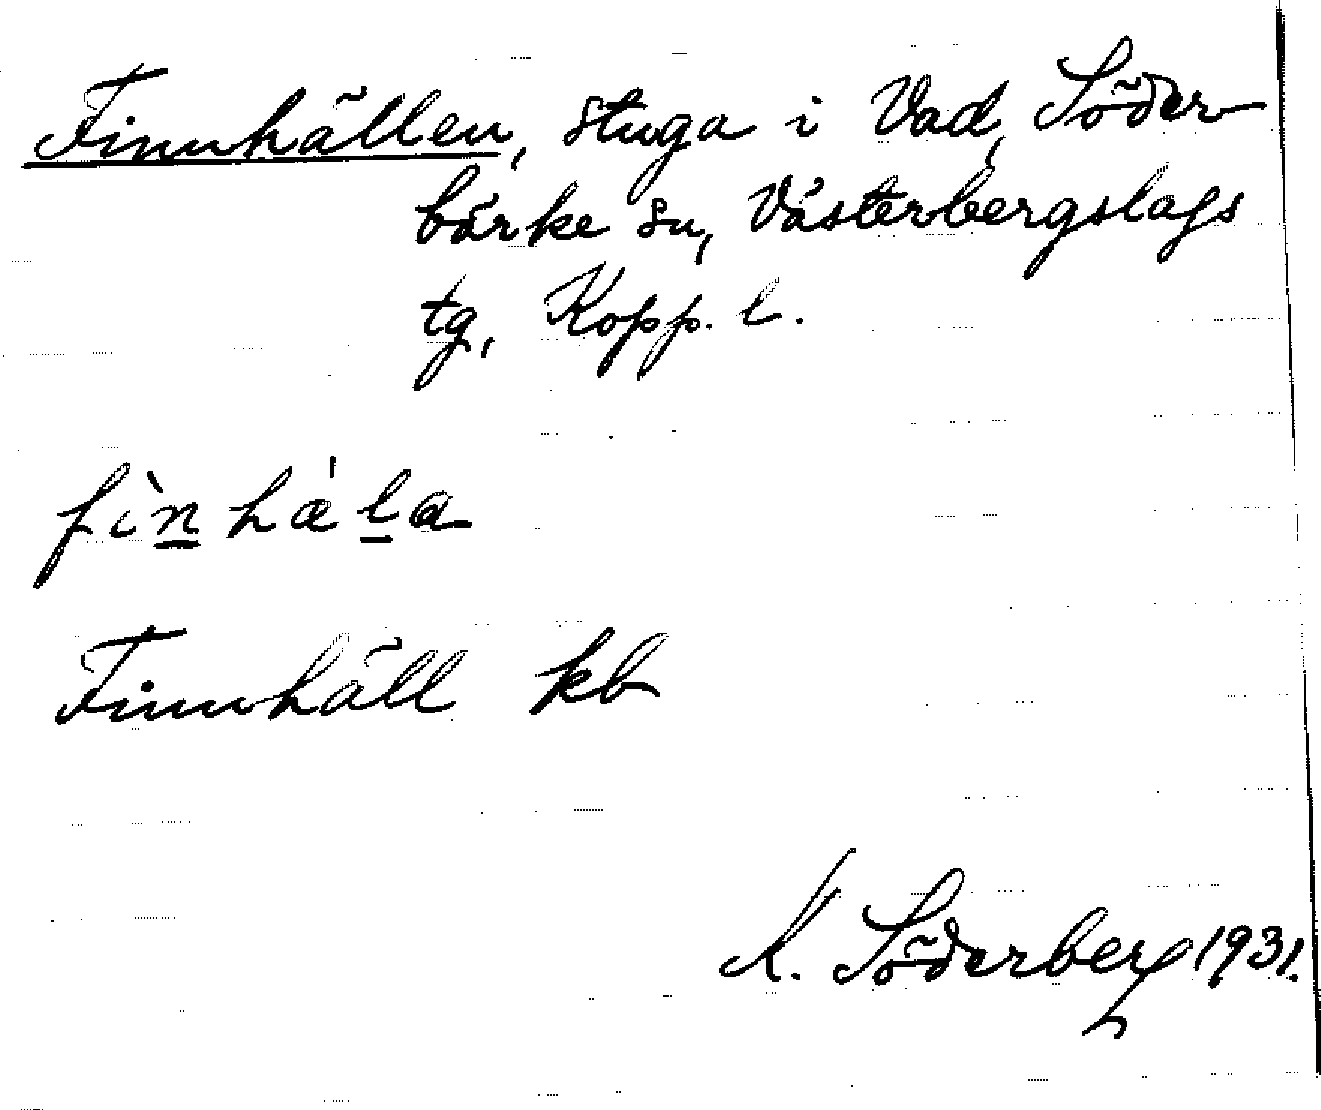 Finnhällen, stuga i Vad, Söder
bärke sn, Västerbergslags
tg, Kopp. l.
fìn̲hæ̍l̲a
Finnhäll kb
K. Söderberg 1931.